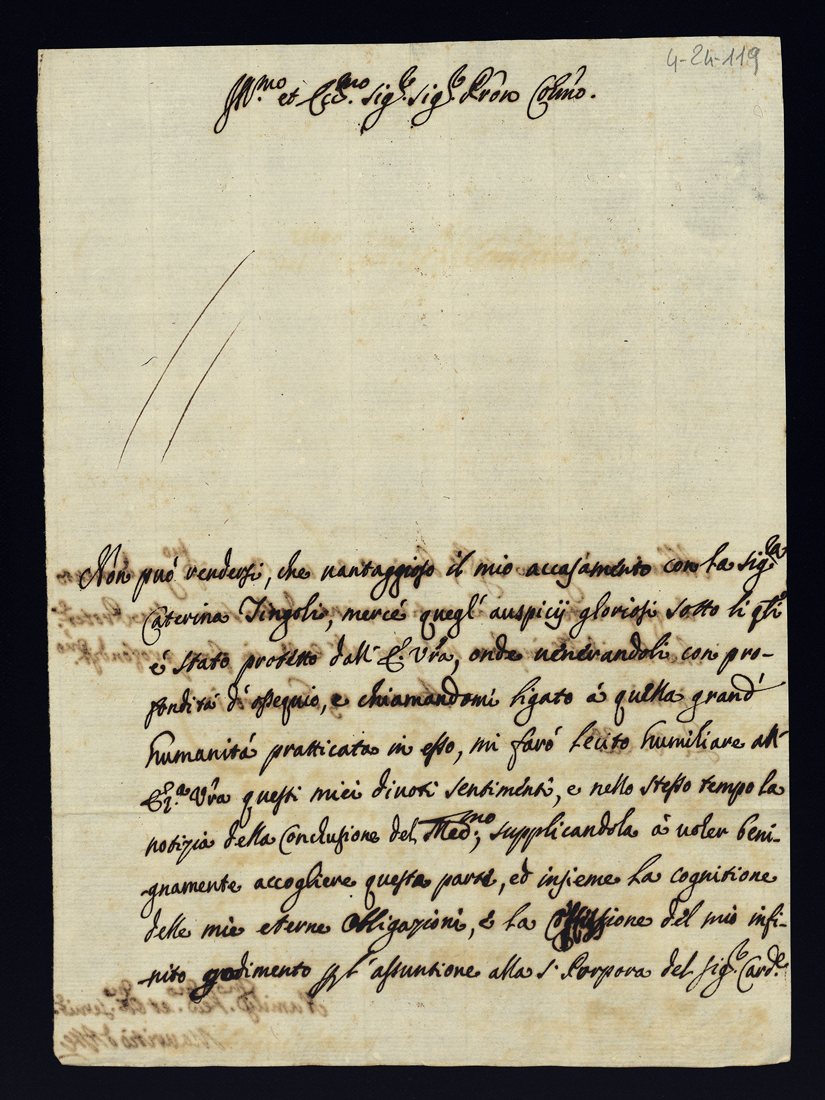 4-24-119
Ill.mo et Ecc.mo Sig.r Sig.r Prôn Colmo.
Non può rendersi, che vantaggioso il mio accasamento con la Sig.ra
Caterina Tingoli, mercé quegl' auspicij gloriosi sotto li qli
è stato protetto dall' E. Vrã, onde venerandoli con pro-
fondità d'ossequio, e chiamandomi ligato à quella grand'
humanità pratticata in esso, mi farò lecito humiliare all'
E. Vrã questi miei divoti sentimenti, e nello stesso tempo la
notizia della Conclusione del Med.mo, supplicandola à voler beni-
gnamente accogliere questa parte, ed insieme la cognitione
delle mie eterne obligazioni, e la del mio infi-
nito godimento p l'assuntione alla S. Porpora del Sig.r Card.le